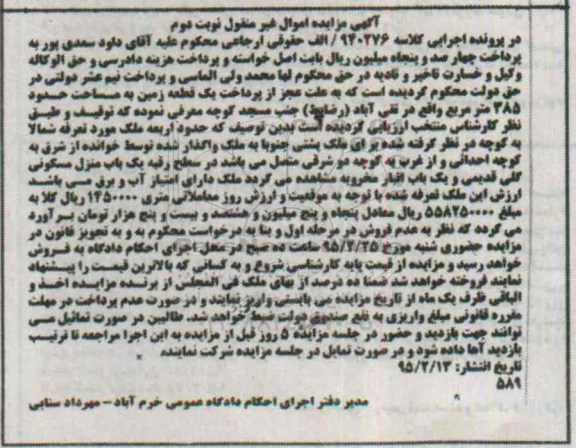 آگهی مزایده اموال غیر منقول نوبت دوم
در پرونده اجرایی کلاسه ۹۴۰۲۷۶ / الف حقوقی ارجاعی محکوم علیه آقای داود سعدی پور به
پرداخت چهار صد و پنجاه میلیون ریال بابت اصل خواسته و پرداخت هزینه دادرسی و حق الوکاله
وکیل و خسارت تاخیر و تادیه در حق محکوم لها محمد ولی الماسی و پرداخت نیم عشر دولتی در
حق دولت محکوم گردیده است که به علت عجز از پرداخت یک قطعه زمین به مساحت حدود
۳۸۵ متر مربع واقع در تقی آباد (رضابط) جنب مسجد کوچه معرفی نموده که توقیف و طبق
نظر کارشناس منتخب ارزیابی گردیده است بدین توصیف که حدود اربعه ملک مورد تعرفه شمالا
به کوچه در نظر گرفته شده برای ملک پشتی جنوبا به ملک واگذار شده توسط خوانده از شرق به
کوچه احداثی و از غرب به کوچه دو شرقی متصل می باشد در سطح رقبه یک باب منزل مسکونی
گلی قدیمی و یک باب انبار مخروبه مشاهده می گردد ملک دارای امتیاز آب و برق می باشد
ارزش این ملک تعرفه شده با توجه به موقعیت و ارزش روز معاملاتی متری ۱۴۵۰۰۰۰ ریال کلا به
مبلغ ۵۵۸۲۵۰۰۰۰ ریال معادل پنجاه و پنج میلیون و هشتصد و بیست و پنج هزار تومان برآورد
می گردد که نظر به عدم فروش در مرحله اول و بنا به درخواست محکوم به و به تجویز قانون در
مزایده حضوری شنبه مورخ ۹۵/۲/۲۵ ساعت ده صبح در محل اجرای احکام دادگاه به فروش
خواهد رسید و مزایده از قیمت پایه کارشناسی شروع و به کسانی که بالاترین قیمت را پیشنهاد
نمایند فروخته خواهد شد ضمنا ده درصد از بهای ملک فی المجلس از برنده مزایده اخذ و
الباقی ظرف یک ماه از تاریخ مزایده می بایستی واریز نمایند و در صورت عدم پرداخت در مهلت
مقرره قانونی مبلغ واریزی به نفع صندوق دولت ضبط خواهد شد. طالبین در صورت تمائیل می
توانند جهت بازدید و حضور در جلسه مزایده ۵ روز قبل از مزایده به این اجرا مراجعه تا ترتیب
بازدید آها داده شود و در صورت تمایل در جلسه مزایده شرکت نمایند.
تاریخ انتشار: ۹۵/۲/۱۳
۵۸۹
مدیر دفتر اجرای احکام دادگاه عمومی خرم آباد - مهرداد سنایی